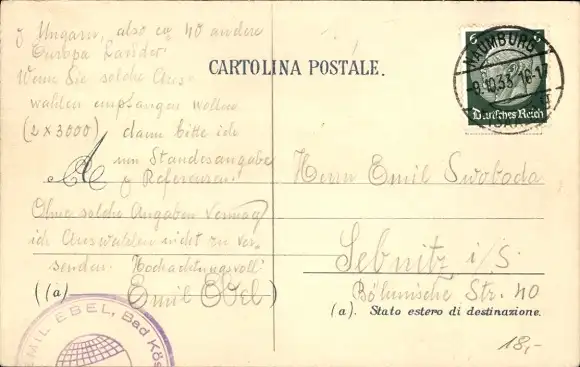 Ungarn, also ca 40 andere
Europa Länder.
Wenn Sie solche Aus-
wahlen empfangen wollen
(2 x 3000) dann bitte ich
um Standesangabe
Referenzen.
Ohne solche Angaben vermag
ich Auswahlen nicht zu ver-
senden. Hochachtungsvoll
(a) Emil Ebel
EMIL EBEL, Bad Kös
CARTOLINA POSTALE.
6 6
NAUMBURG
9.10.33. 16-17
(SAALE)
Deutsches Reich
Herrn Emil Swoboda
Sebnitz i/S.
Böhmische Str. 40
(a). Stato estero di destinazione.
18,-